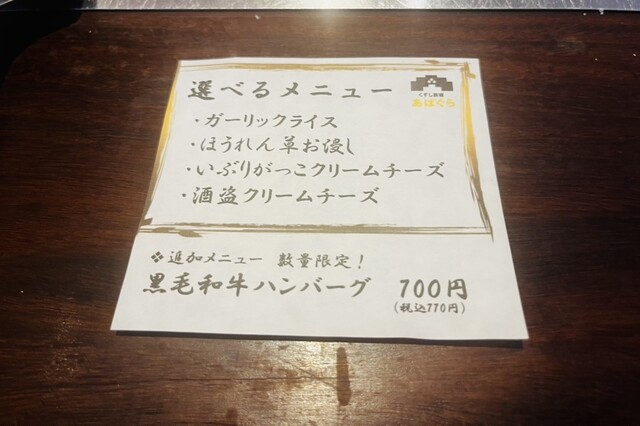 選べるメニュー
くずし鉄板
あばぐら
・ガーリックライス
・ほうれん草お浸し
・いぶりがっこクリームチーズ
・酒盗クリームチーズ
❖追加メニュー 数量限定!
黒毛和牛ハンバーグ 700円
(税込770円)